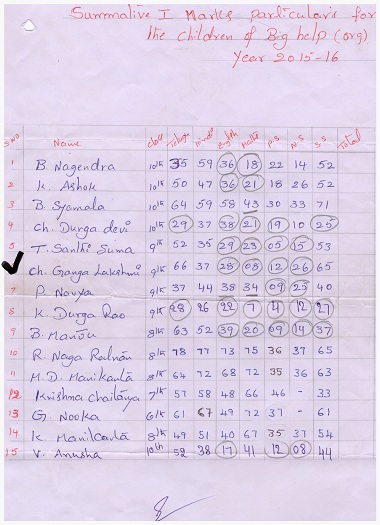 Summative I Marks particulars for
the children of Big help (org)
Year 2015-16
S.NO Name class Telugu Hindi English Maths P.S N.S S.S Total
1 B. Nagendra 10th 35 59 36 18 22 14 52
2 K. Ashok 10th 50 47 36 21 18 26 52
3 B. Syamala 10th 64 59 58 43 30 33 71
4 Ch. Durga devi 10th 29 37 38 21 19 10 25
5 T. Santhi Suma 9th 52 35 29 23 05 15 53
Ch. Ganga Lakshmi 9th 66 37 28 08 12 26 65
7 P. Navya 9th 37 44 38 34 09 25 40
8 K. Durga Rao 9th 28 26 22 7 4 12 27
9 B. Manju 8th 63 52 39 20 09 14 37
10 R. Naga Ratnam 8th 78 77 73 75 36 37 65
11 M.D. Manikanta 8th 64 72 68 72 35 36 63
12 Krishna chaitanya 7th 57 58 48 66 46 - 33
13 G. Nooka 6th 61 67 49 72 37 - 61
14 K. Manikanta 8th 49 51 40 67 35 37 54
15 V. Anusha 10th 52 38 17 41 12 08 44